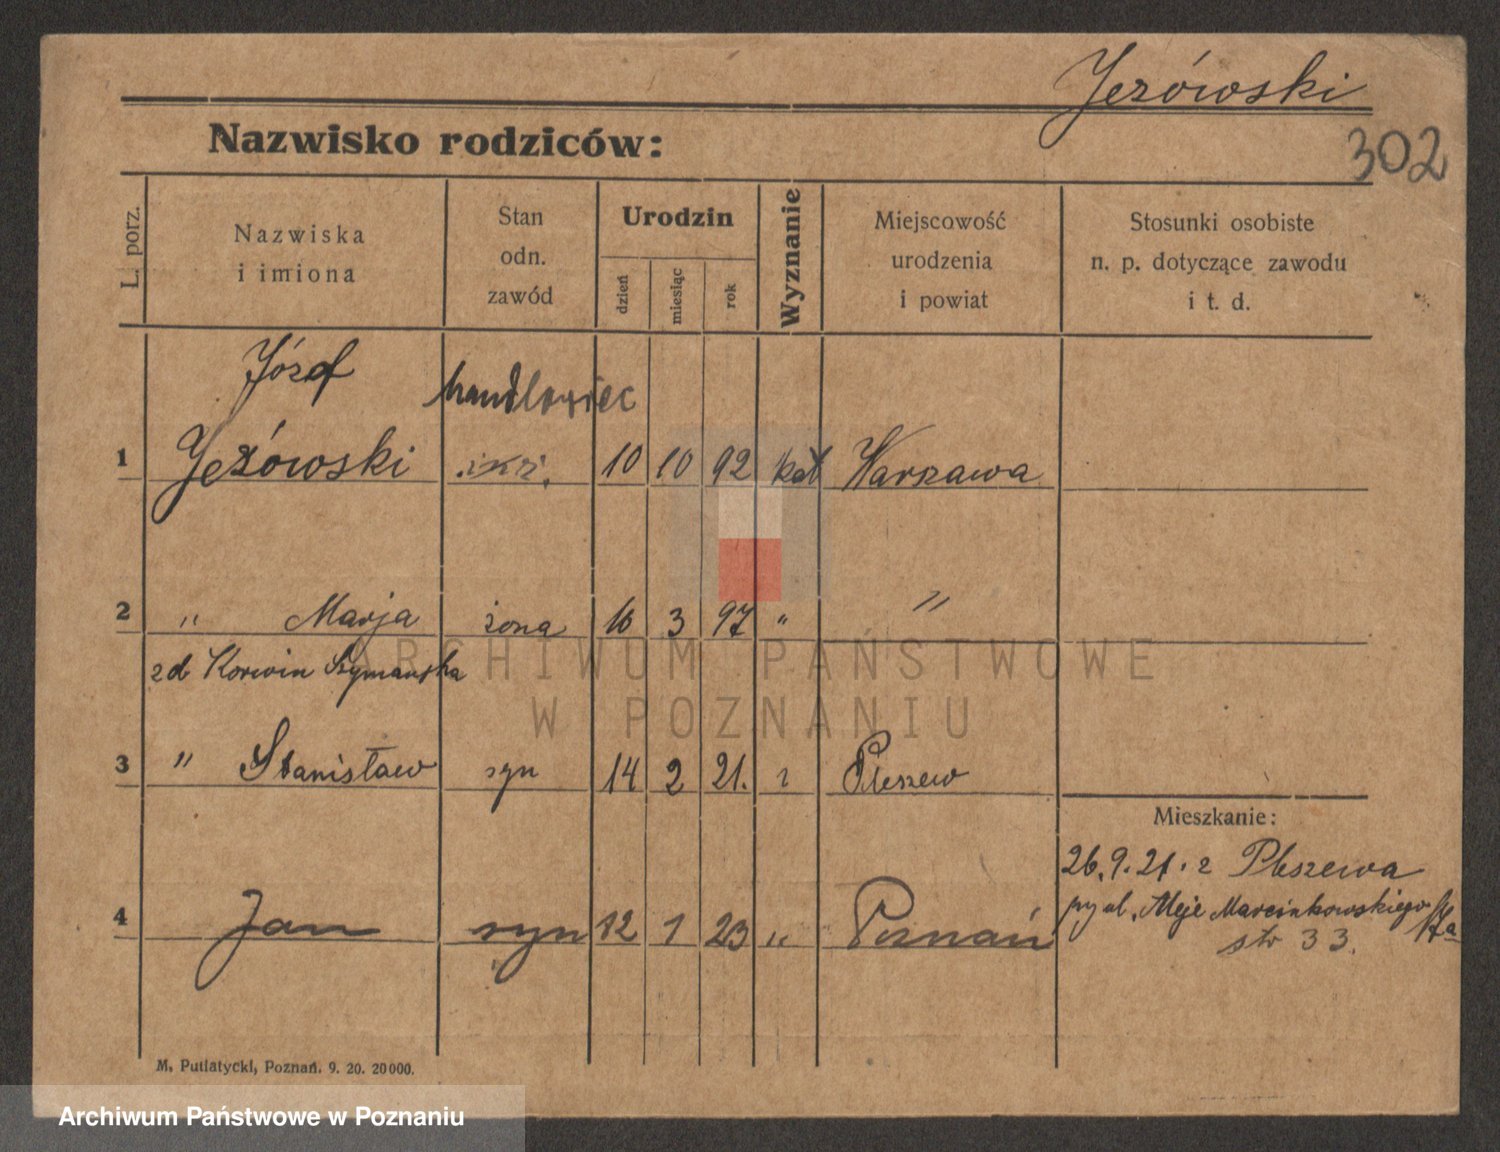 Jezówski
302
Nazwisko rodziców:
L. porz.
Nazwiska
i imiona
Stan
odn.
zawód
Urodzin
dzień
miesiąc
rok
Wyznanie
Miejscowość
urodzenia
i powiat
Stosunki osobiste
n. p. dotyczące zawodu
i t. d.
Józef
handlowiec
1 Jeżówski 10 10 92 kat Warszawa
2 " Marja żona 16 3 97 " "
zd Korwin Szymańska
ARCHIWUM PAŃSTWOWE
W POZNANIU
3 " Stanisław syn 14 2 21. Pleszew
Mieszkanie:
26.9.21. z Pleszewa
Aleje Marcinkowskiego 17a
str 33.
4 Jan syn 12 1 23 " Poznań
M. Putiatycki, Poznań. 9. 20. 20000.
Archiwum Państwowe w Poznaniu